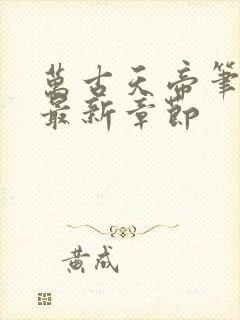 萬古天帝筆
最新章節
黃成